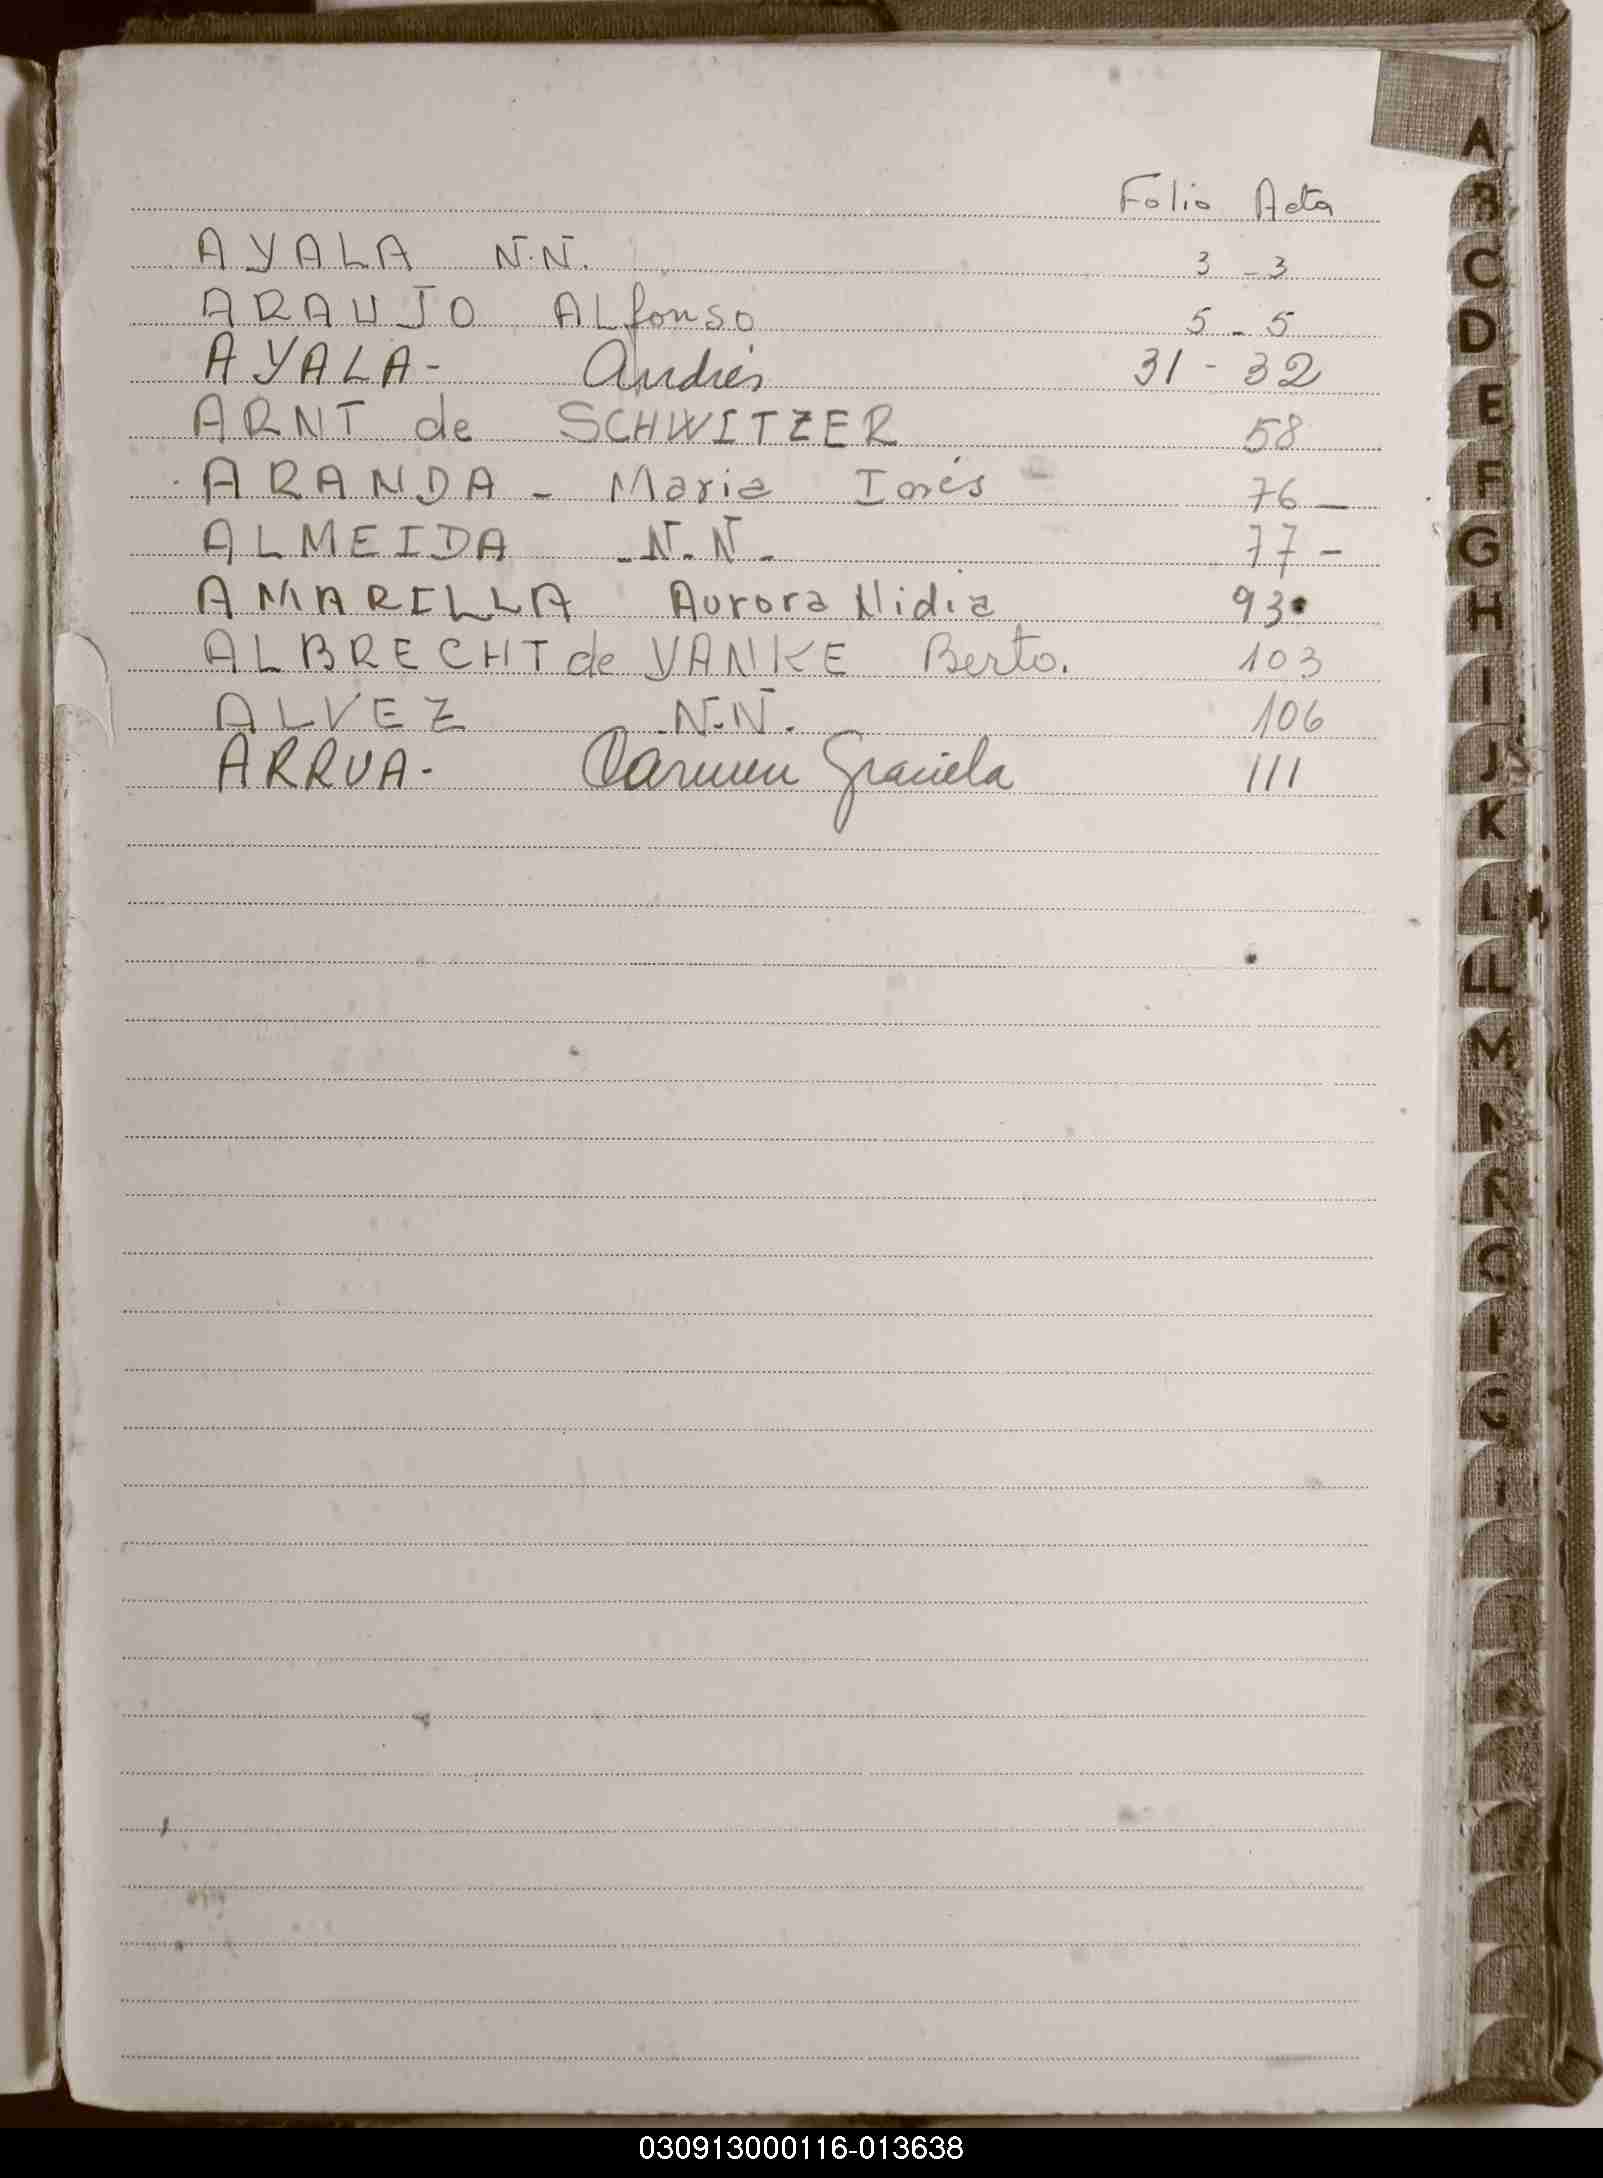 Folio Acta
AYALA N.N. 3 - 3
ARAUJO ALfonso 5 - 5
AYALA- Andrés 31 - 32
ARNT de SCHWITZER 58
ARANDA - Maria Inés 76 -
ALMEIDA -N.N.- 77 -
AMARILLA Aurora Nidia 93.
ALBRECHT de YANKE Berto. 103
ALVEZ N.N. 106
ARRUA- Carmen Graciela 111
A
B
C
D
E
F
G
H
I
J
K
L
LL
M
N
030913000116-013638